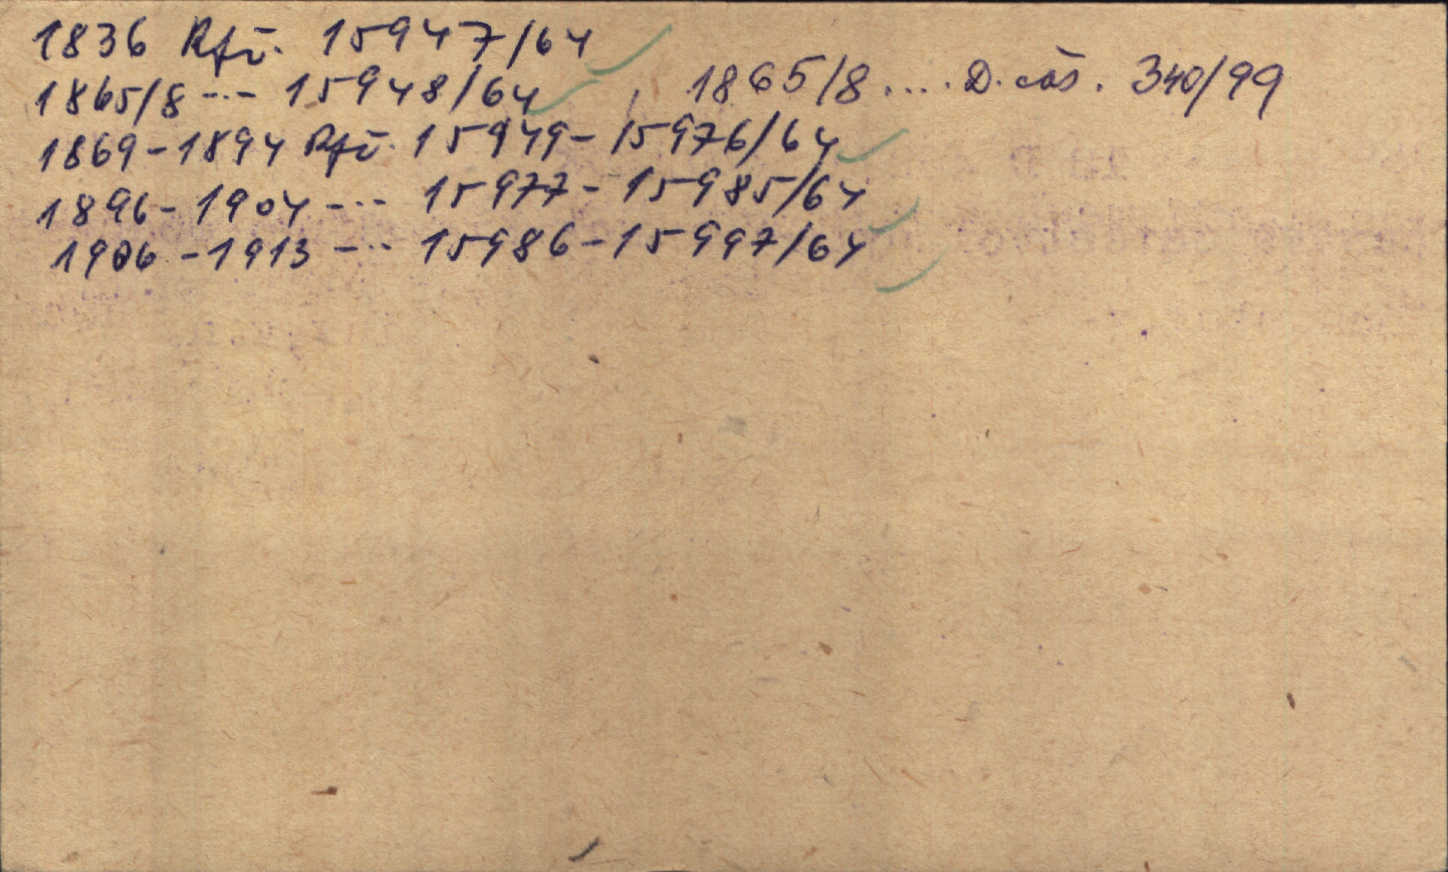 1836 Rfü. 15947/64
1865/8 --·- 15948/64, 1865/8 .... D. čas. 340/99
1869-1894 Rfü. 15949-15976/64
1896-1904 -·-- 15977-15985/64
1906-1913 -·-- 15986-15997/64